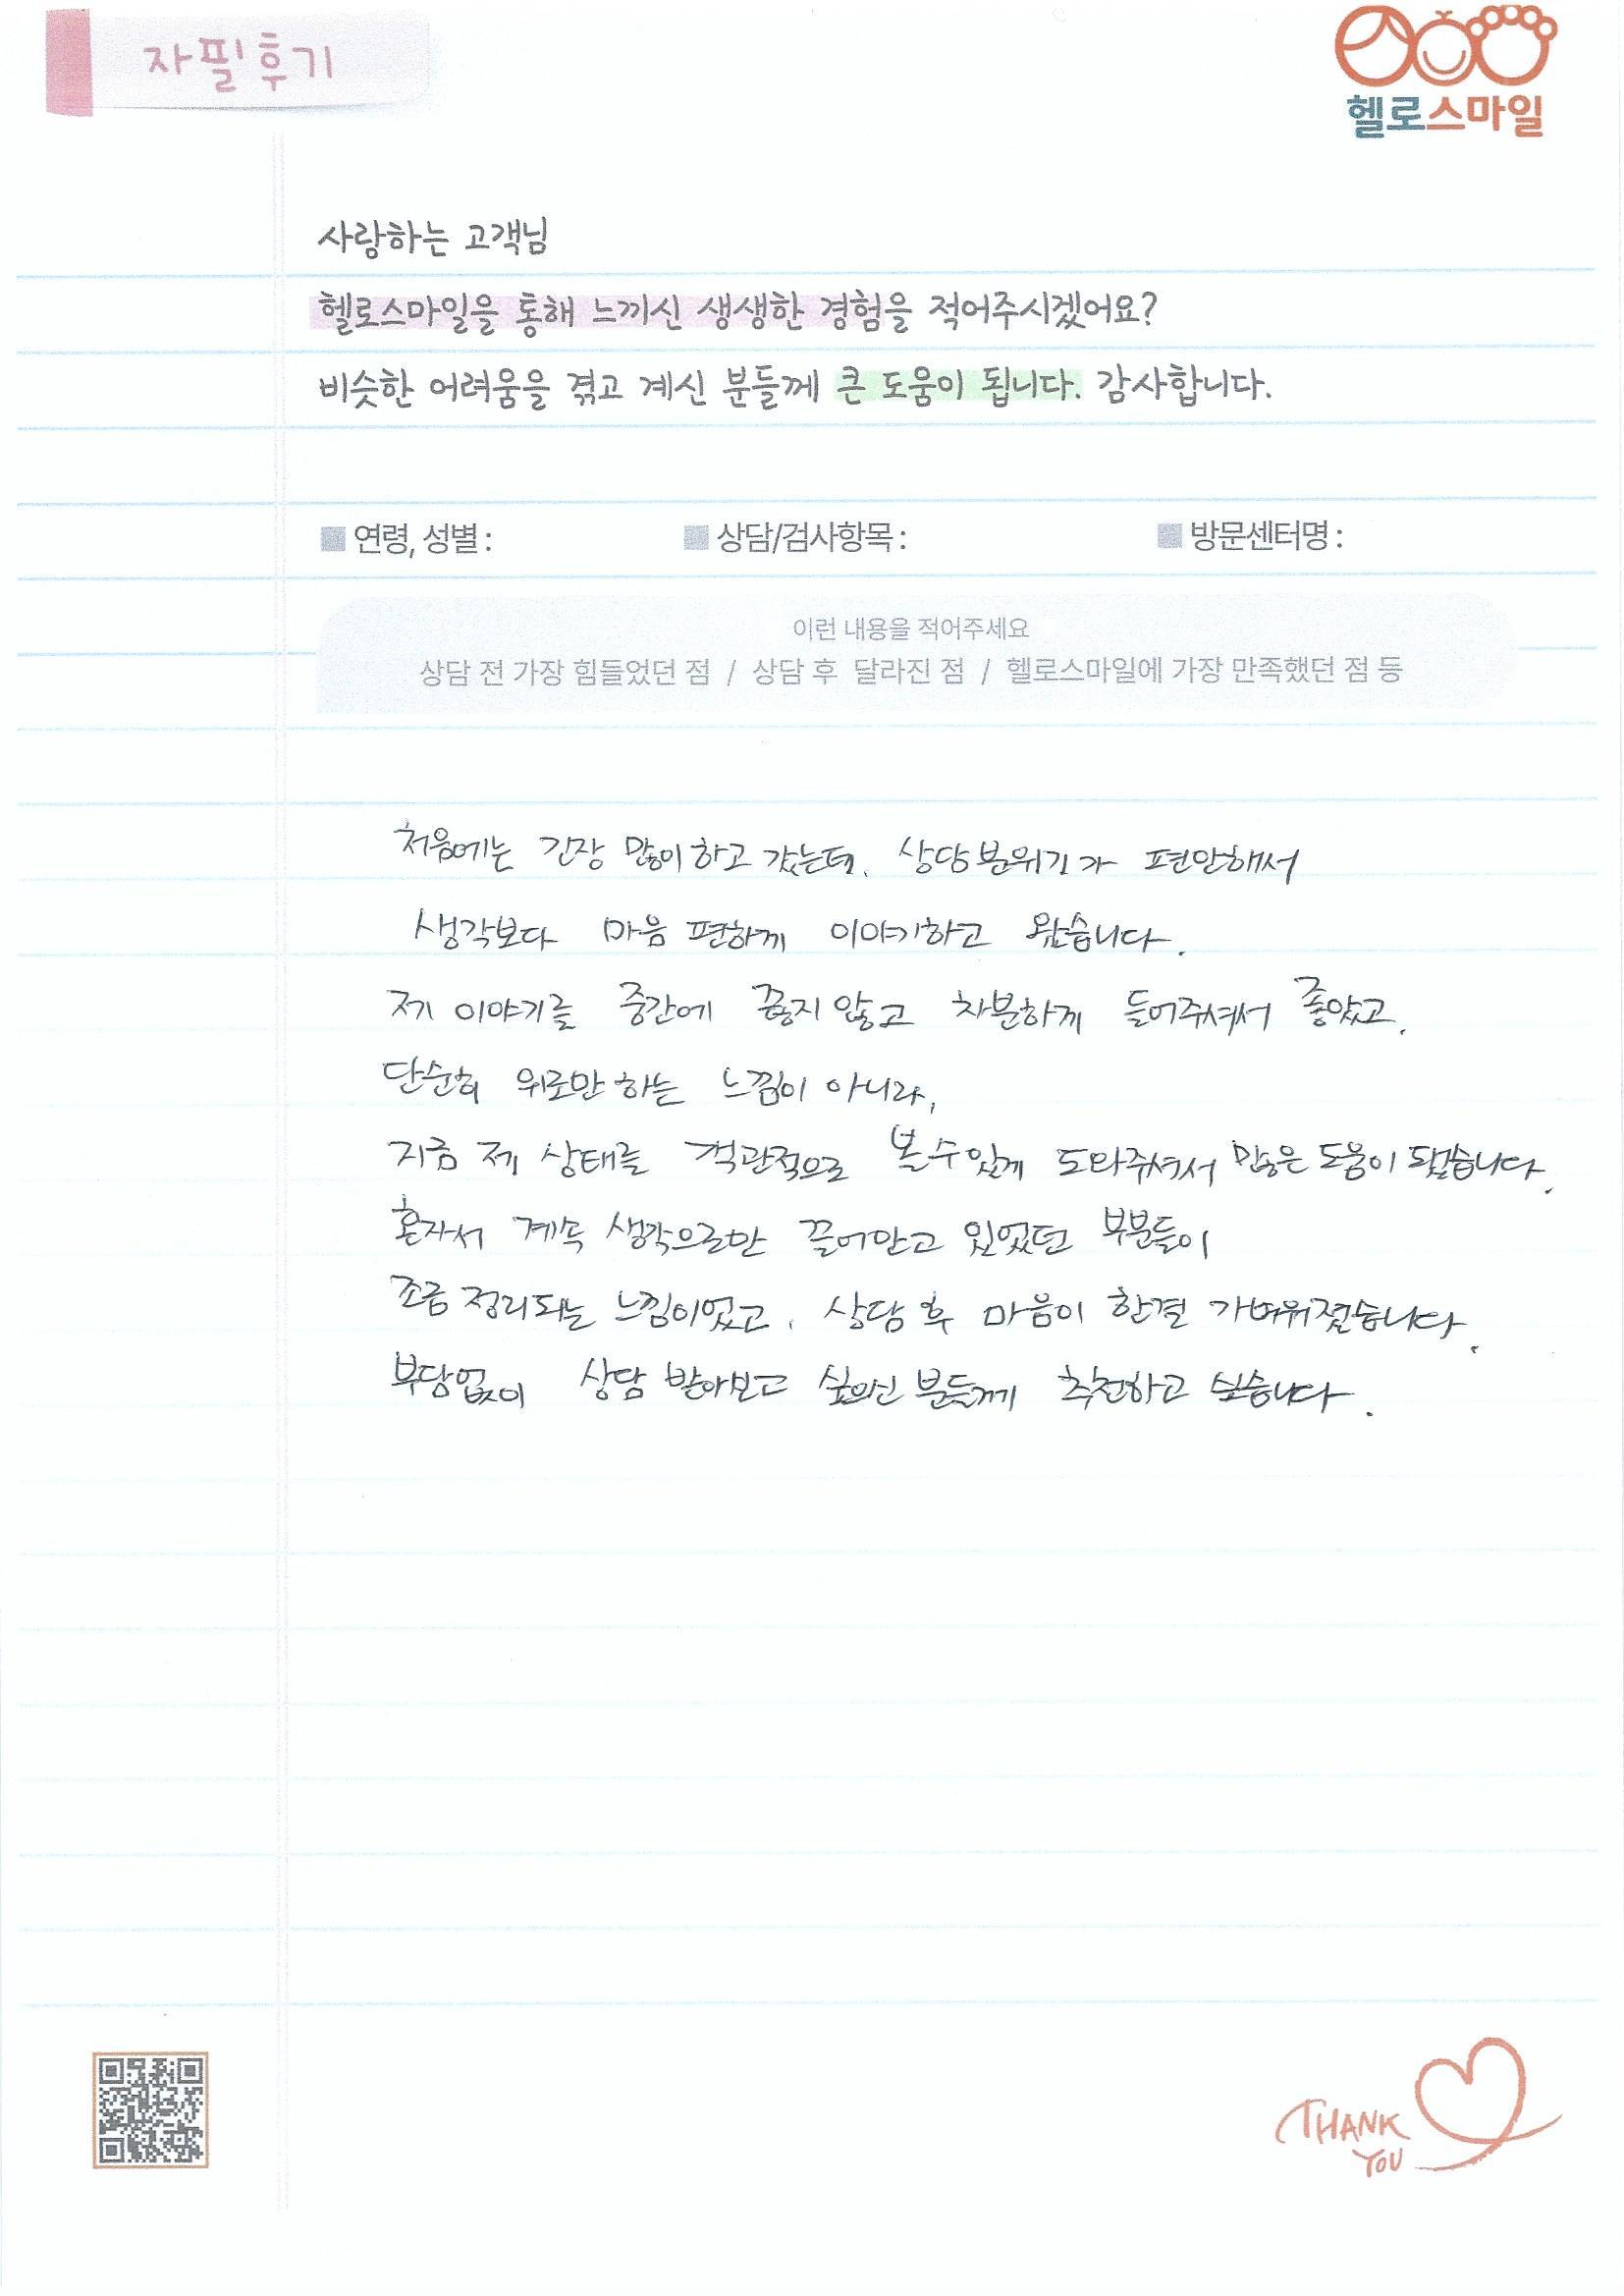 자필후기
헬로스마일
사랑하는 고객님
헬로스마일을 통해 느끼신 생생한 경험을 적어주시겠어요?
비슷한 어려움을 겪고 계신 분들께 큰 도움이 됩니다. 감사합니다.
■ 연령, 성별 : ■ 상담/검사항목 : ■ 방문센터명 :
이런 내용을 적어주세요
상담 전 가장 힘들었던 점 / 상담 후 달라진 점 / 헬로스마일에 가장 만족했던 점 등
처음에는 긴장 많이 하고 갔는데, 상담 분위기가 편안해서
생각보다 마음 편하게 이야기하고 왔습니다.
제 이야기를 중간에 끊지 않고 차분하게 들어주셔서 좋았고,
단순히 위로만 하는 느낌이 아니라,
지금 제 상태를 객관적으로 볼 수 있게 도와주셔서 많은 도움이 됐습니다.
혼자서 계속 생각으로만 끌어안고 있었던 부분들이
조금 정리되는 느낌이었고, 상담 후 마음이 한결 가벼워졌습니다.
부담없이 상담 받아보고 싶으신 분들께 추천하고 싶습니다.
THANK
YOU